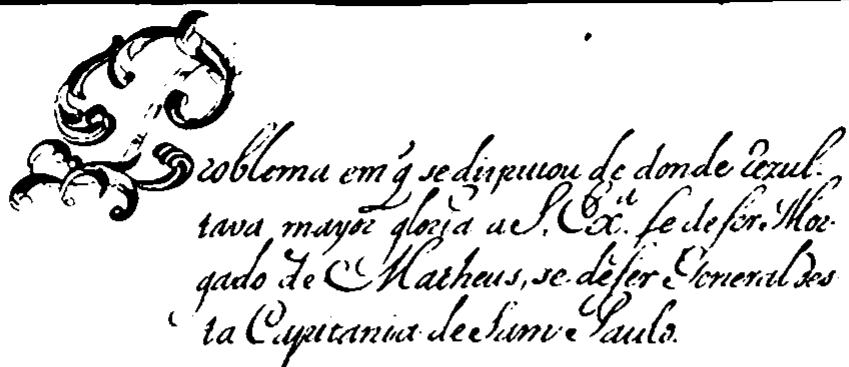 Problema em q̃ se disputou de donde rezul-
tava mayor gloria a S. Exª. se de ser Mor-
gado de Matheus, se de ser General des
ta Capitania de Sam Paulo.